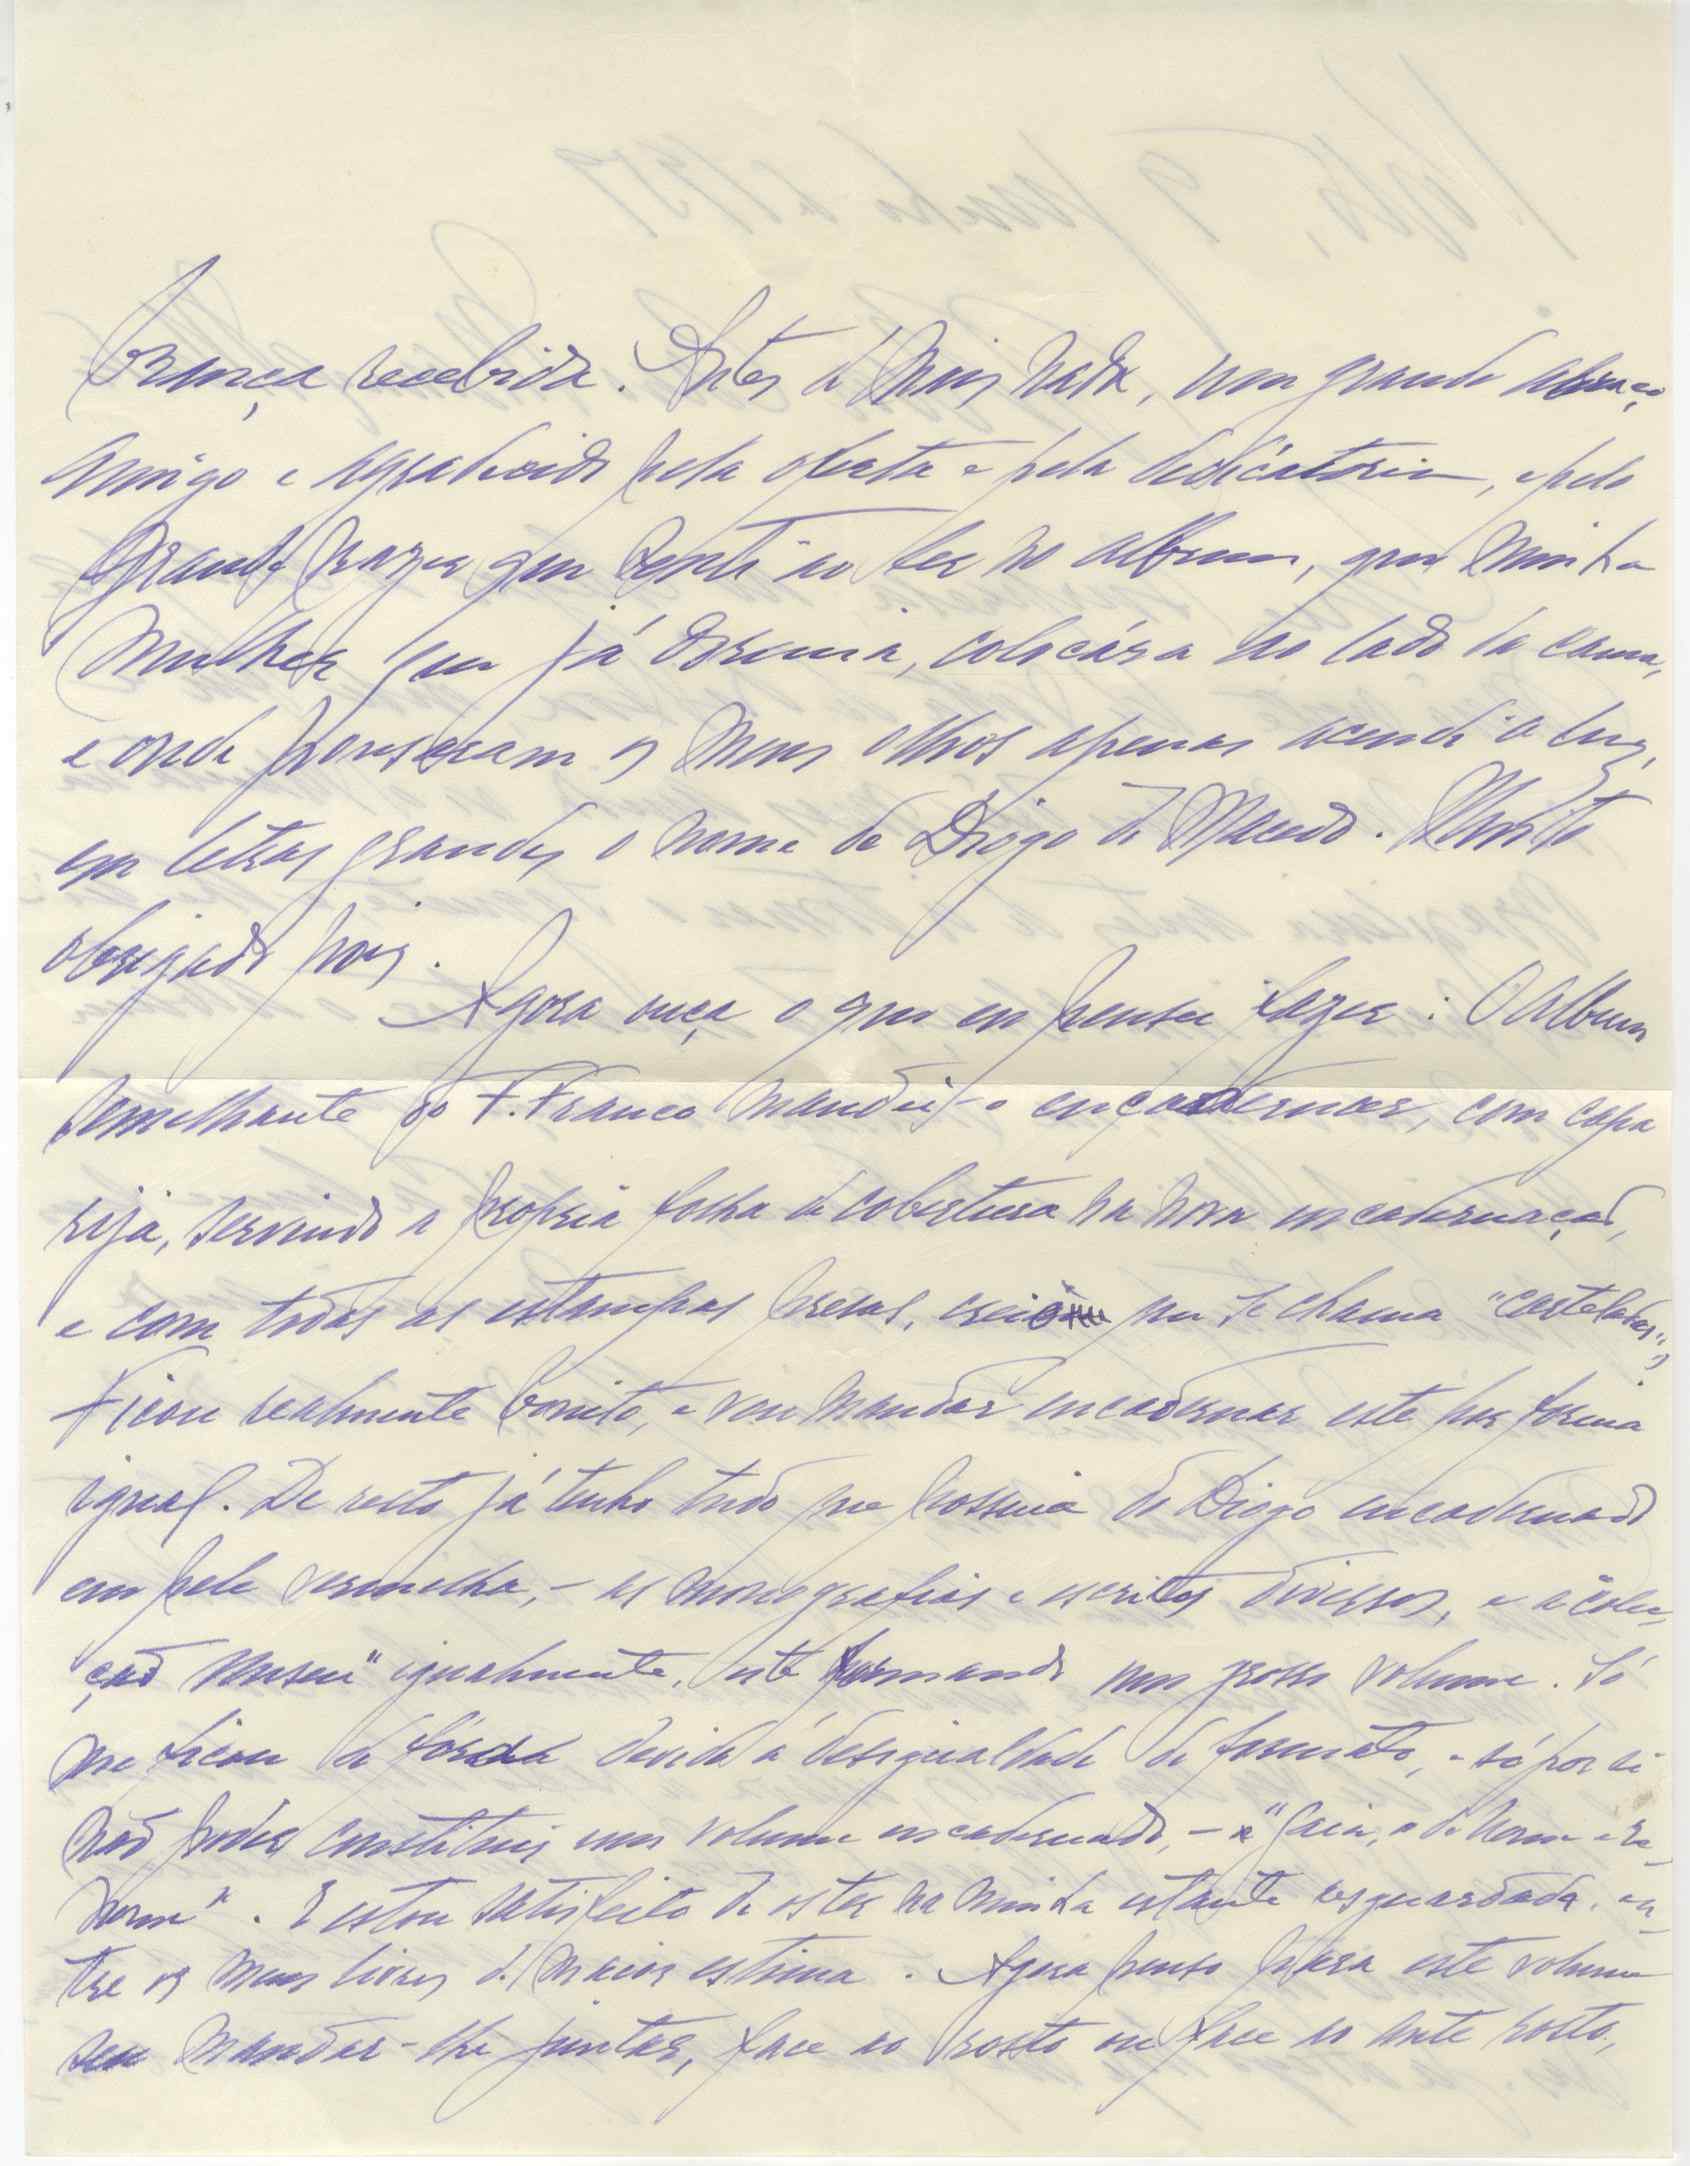 brança recebida. Antes de mais nada, um grande abraço
amigo e agradecido pela oferta e pela dedicatoria, e pelo
grande prazer que senti ao ler no album, que minha
mulher que já dormia, colocára ao lado da cama,
e onde pousaram os meus olhos apenas acendi a luz,
em letras grandes o nome de Diogo de Macedo. Muito
obrigado pois.
Agora ouça o que eu pensei fazer: O album
semelhante do F. Franco mandei-o encadernar, com capa
rija, servindo a propria folha de cobertura na nova encadernação,
e com todas as estampas presas, creio que se chama "casteladas",
Ficou realmente bonito, e vou mandar encadernar este por forma
igual. De resto já tenho tudo que possuia do Diogo encadernado
em pele vermelha, - as monografias e escritos diversos, e a "colec-
ção Museu" igualmente, este formando um grosso volume. Só
me ficou de fóra devido á desigualdade de formato, e só por si
não poder constituir um volume encadernado, - "Gaia, a de nome e re-
nome". E estou satisfeito de os ter na minha estante resguardada, en-
tre os meus livros de maior estima. Agora penso para este volume
seu mandar-lhe juntar, face ao rosto ou face ao ante rosto,